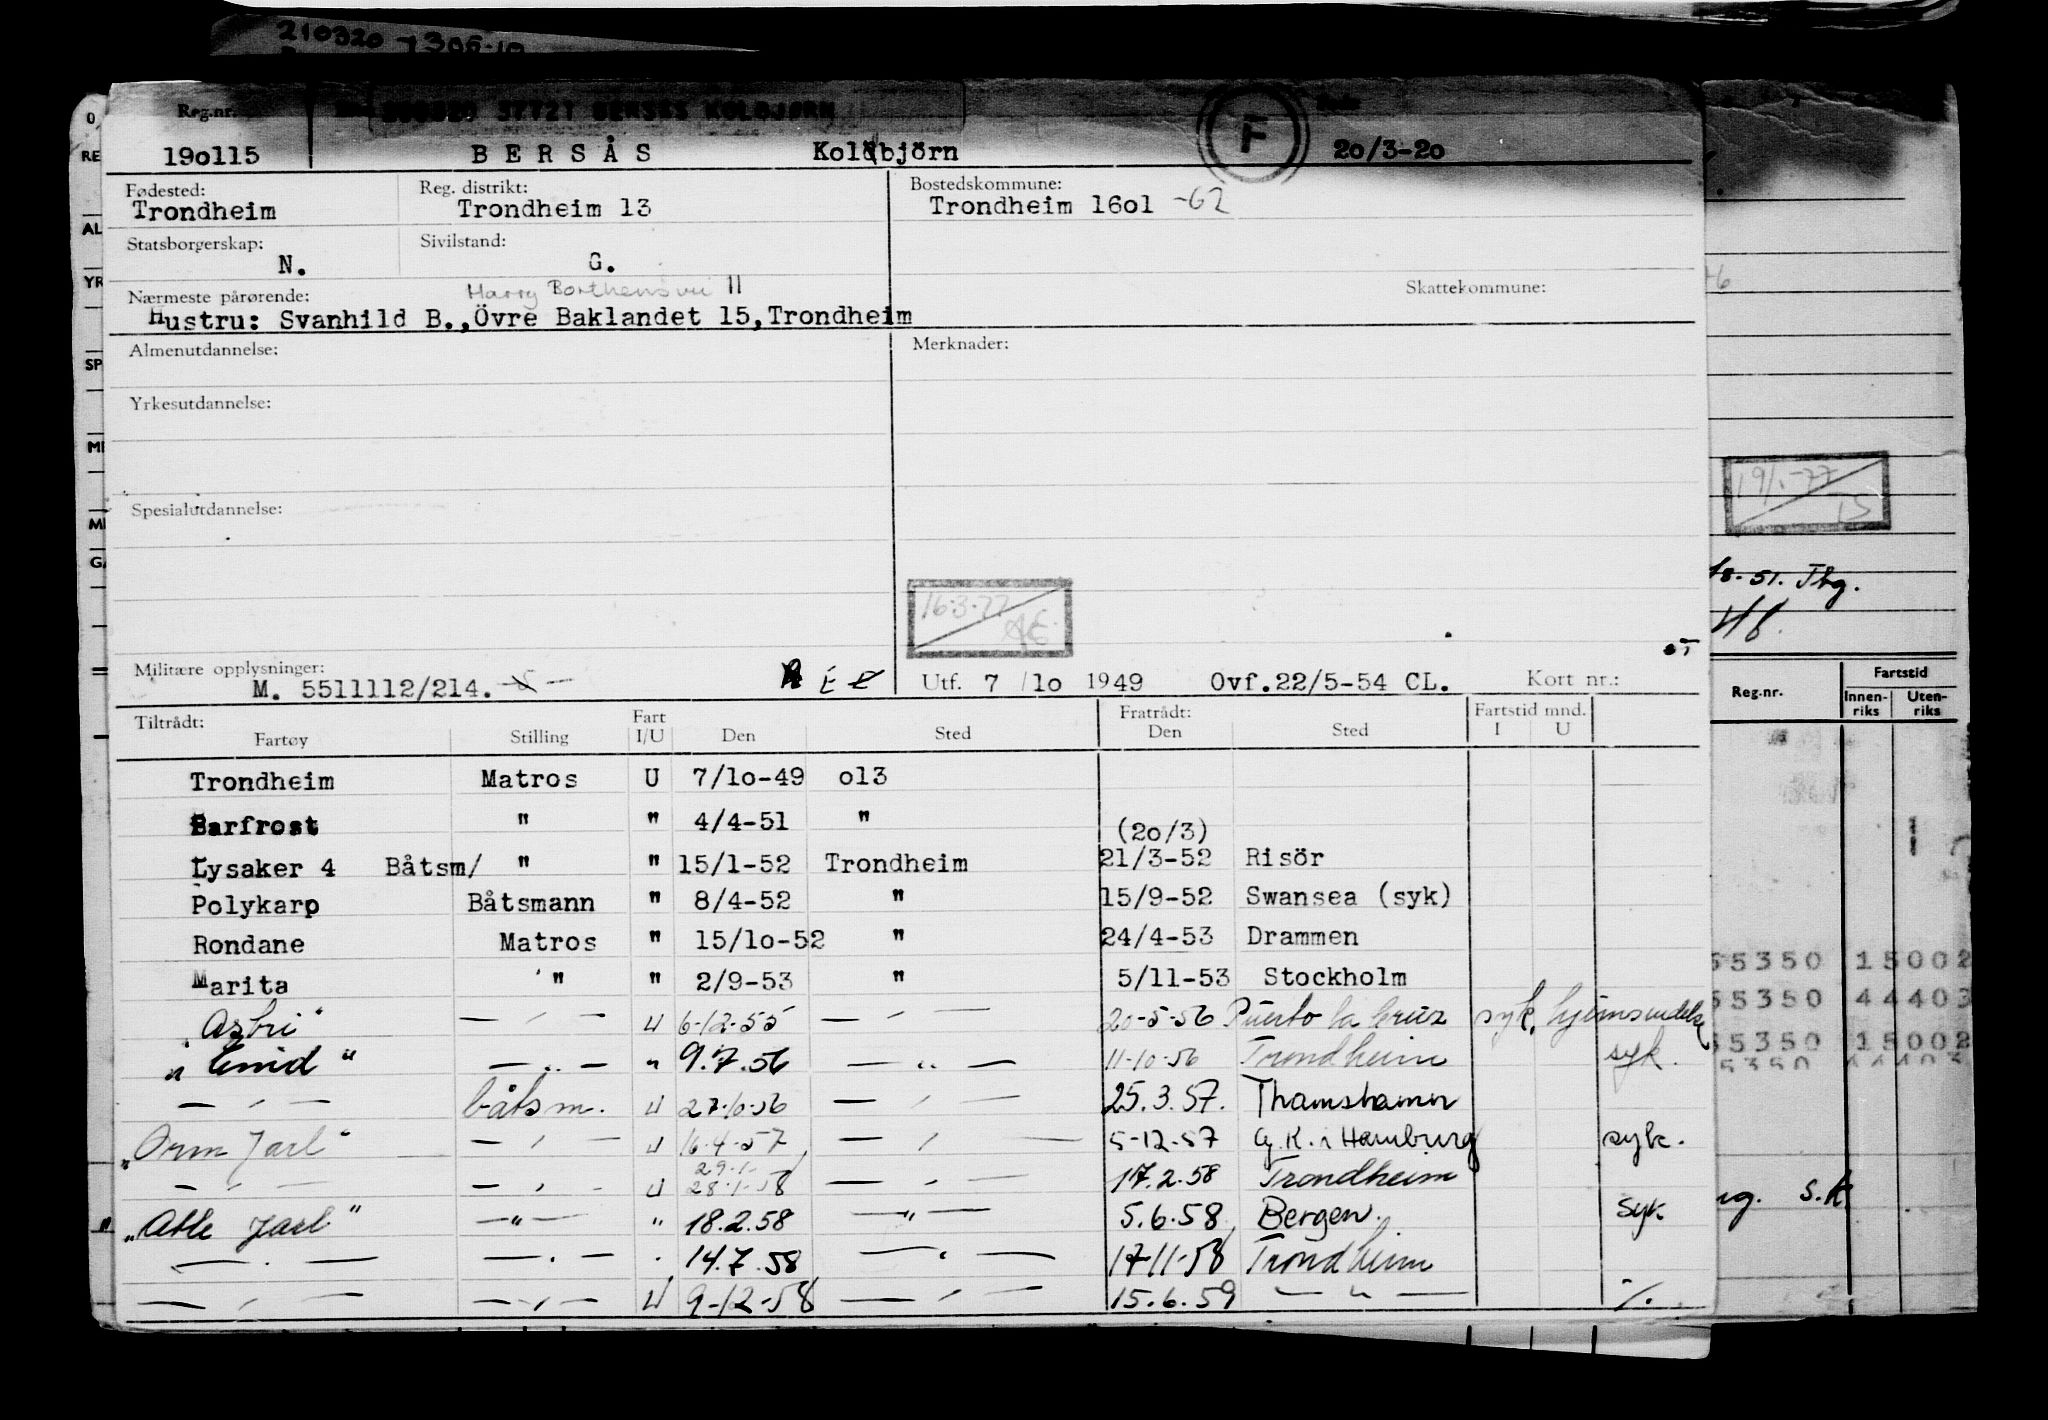 210320
Reg.nr. 37721 BERSÅS KOLBJØRN F
190115 BERSÅS Kolbjörn 20/3-20
Fødested: Reg. distrikt: Bostedskommune:
Trondheim Trondheim 13 Trondheim 1601 -62
Statsborgerskap: Sivilstand:
N. G.
Nærmeste pårørende: Harry Borthensvei 11 Skattekommune:
Hustru: Svanhild B.,Övre Baklandet 15,Trondheim
Almenutdannelse: Merknader:
Yrkesutdannelse:
Spesialutdannelse:
16.3.77
Militære opplysninger:
M. 5511112/214. Utf. 7/10 1949 Ovf.22/5-54 CL. Kort nr.:
Tiltrådt: Fart Fratrådt: Fartstid mnd.
Fartøy Stilling I/U Den Sted Den Sted I U
Trondheim Matros U 7/10-49 013
Barfrost " " 4/4-51 " (20/3)
Lysaker 4 Båtsm/ " " 15/1-52 Trondheim 21/3-52 Risör
Polykarp Båtsmann " 8/4-52 " 15/9-52 Swansea (syk)
Rondane Matros " 15/10-52 " 24/4-53 Drammen
Marita " " 2/9-53 " 5/11-53 Stockholm
"Asbri" — " — U 6-12-55 — " — 20-5-56 Puerto la Cruz syk, hjemsendelse
"Enid" — " — " 9.7.56 — " — 11-10-56 Trondheim syk.
— " — båtsm. U 27-10-56 — " — 25.3.57. Thamshamn
"Orm Jarl" — " — U 16-4-57 — " — 5-12-57 G.K. i Hamburg syk.
29-1-
— " — — " — U 28-1-58 — " — 17.2.58 Trondheim
"Atle Jarl" — " — " 18.2.58 — " — 5.6.58 Bergen. syk
— " — — " — " 14.7.58 — " — 17-11-58 Trondheim
— " — — " — U 9-12-58 — " — 15.6.59 — " — %.
0
RE
AL
YR
SP
19/1-77
Fartstid
Reg.nr. Innen-riks Uten-riks
55350 15002
55350 44403
55350 15002
5350 44403